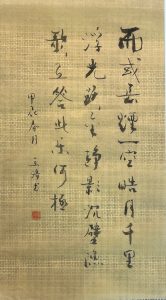 而或長煙一空皓月千里
浮光躍金靜影沉璧漁
歌互答此樂何極